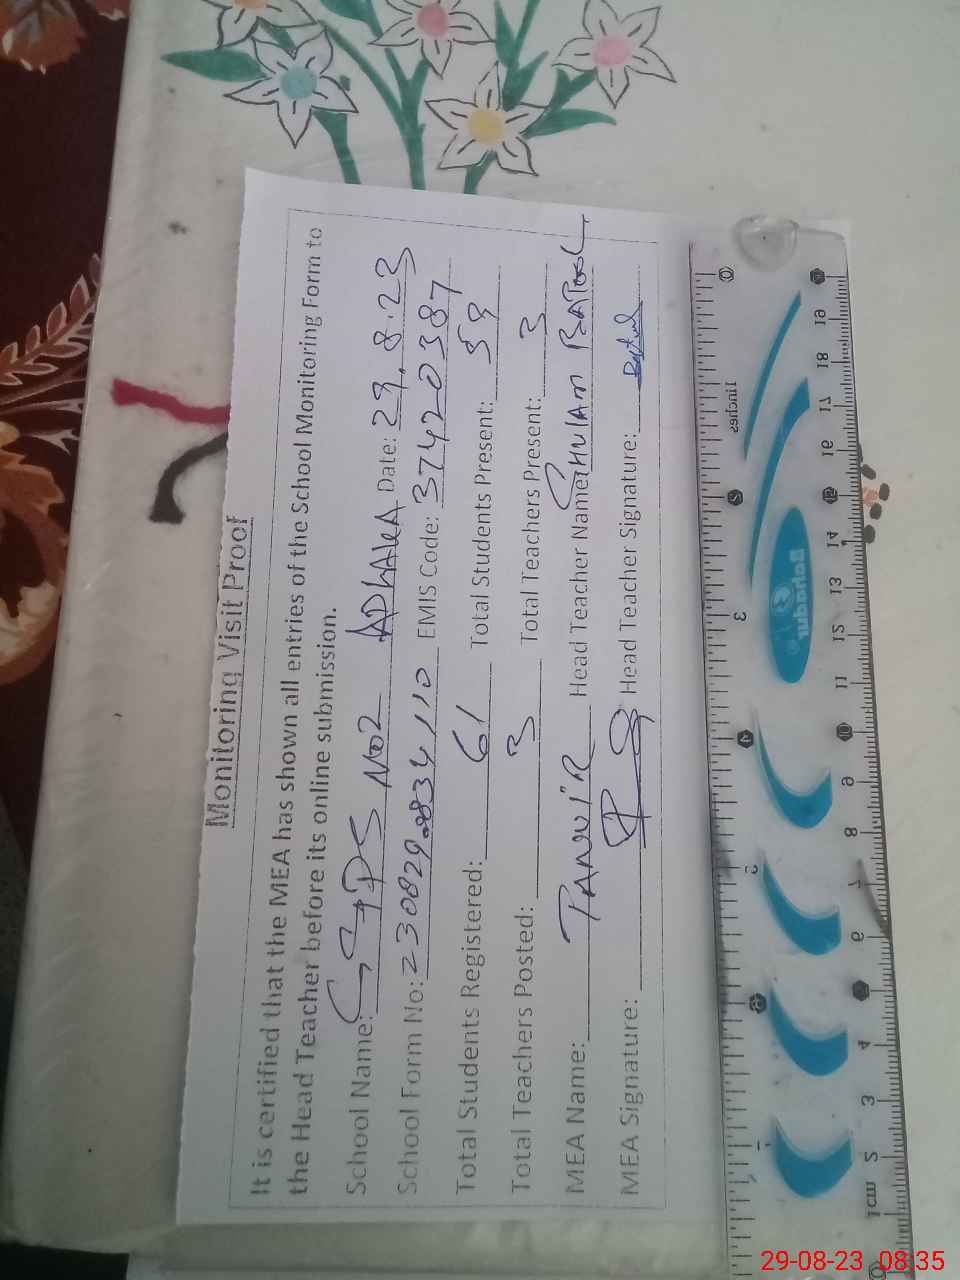 Monitoring Visit Proof
It is certified that the MEA has shown all entries of the School Monitoring Form to
the Head Teacher before its online submission.
School Name: GGPS No2 ADLAKA Date: 29.8.23
School Form No: EMIS Code: 37420387
Total Students Registered: 61 Total Students Present: 59
Total Teachers Posted: 3 Total Teachers Present: 3
MEA Name: TANVIR Head Teacher Name: GHULAM BATOOL
MEA Signature: Head Teacher Signature: Batul
Inches
Bahadur
1cm 2 3 4 5 6 7 8 9 10 11 12 13 14 15 16 17 18 19
29-08-23 08:35